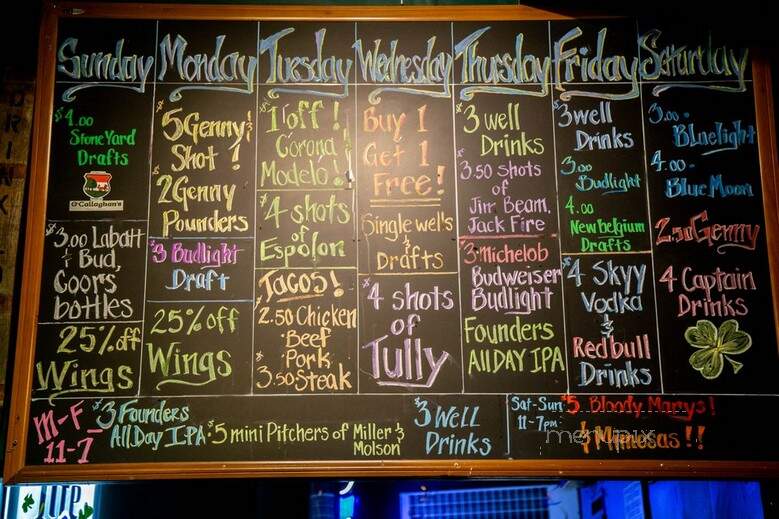 Sunday
$4.00
StoneYard
Drafts
O'Callaghan's
$3.00 Labatt
& Bud,
Coors
bottles
25% off
Wings
Monday
$5 Genny &
Shot!
$2 Genny
Pounders
$3 Budlight
Draft
25% off
Wings
Tuesday
$1 off!
Corona
Modelo!
$4 shots
of
Espolon
Tacos!
$2.50 Chicken
Beef
Pork
$3.50 Steak
Wednesday
Buy 1
Get 1
Free!
Single wells
&
Drafts
$4 shots
of
Tully
Thursday
$3 well
Drinks
$3.50 shots
of
Jim Beam,
Jack Fire
$3 Michelob
Budweiser
Budlight
Founders
All DAY IPA
Friday
$3 well
Drinks
3.00
Budlight
4.00
New Belgium
Drafts
$4 SKYY
Vodka
&
Redbull
Drinks
Saturday
3.00-
Bluelight
4.00-
Blue Moon
2.50 Genny
$4 Captain
Drinks
M-F
11-7
$3 Founders
All Day IPA
$5 mini Pitchers of Miller &
Molson
$3 Well
Drinks
Sat-Sun
11-7pm
$5 Bloody Marys!
& Mimosas!!
menupix